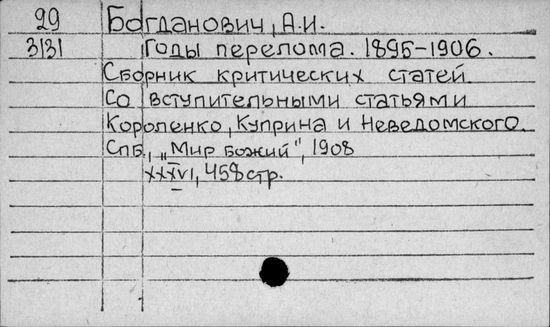 29 Богданович, А.И.
3131 Годы перелома. 1895-1906.
Сборник критических статей.
Со вступительными статьями
Короленко, Куприна и Неведомского.
Спб., „Мир Божий", 1908
XXXVI, 458 стр.